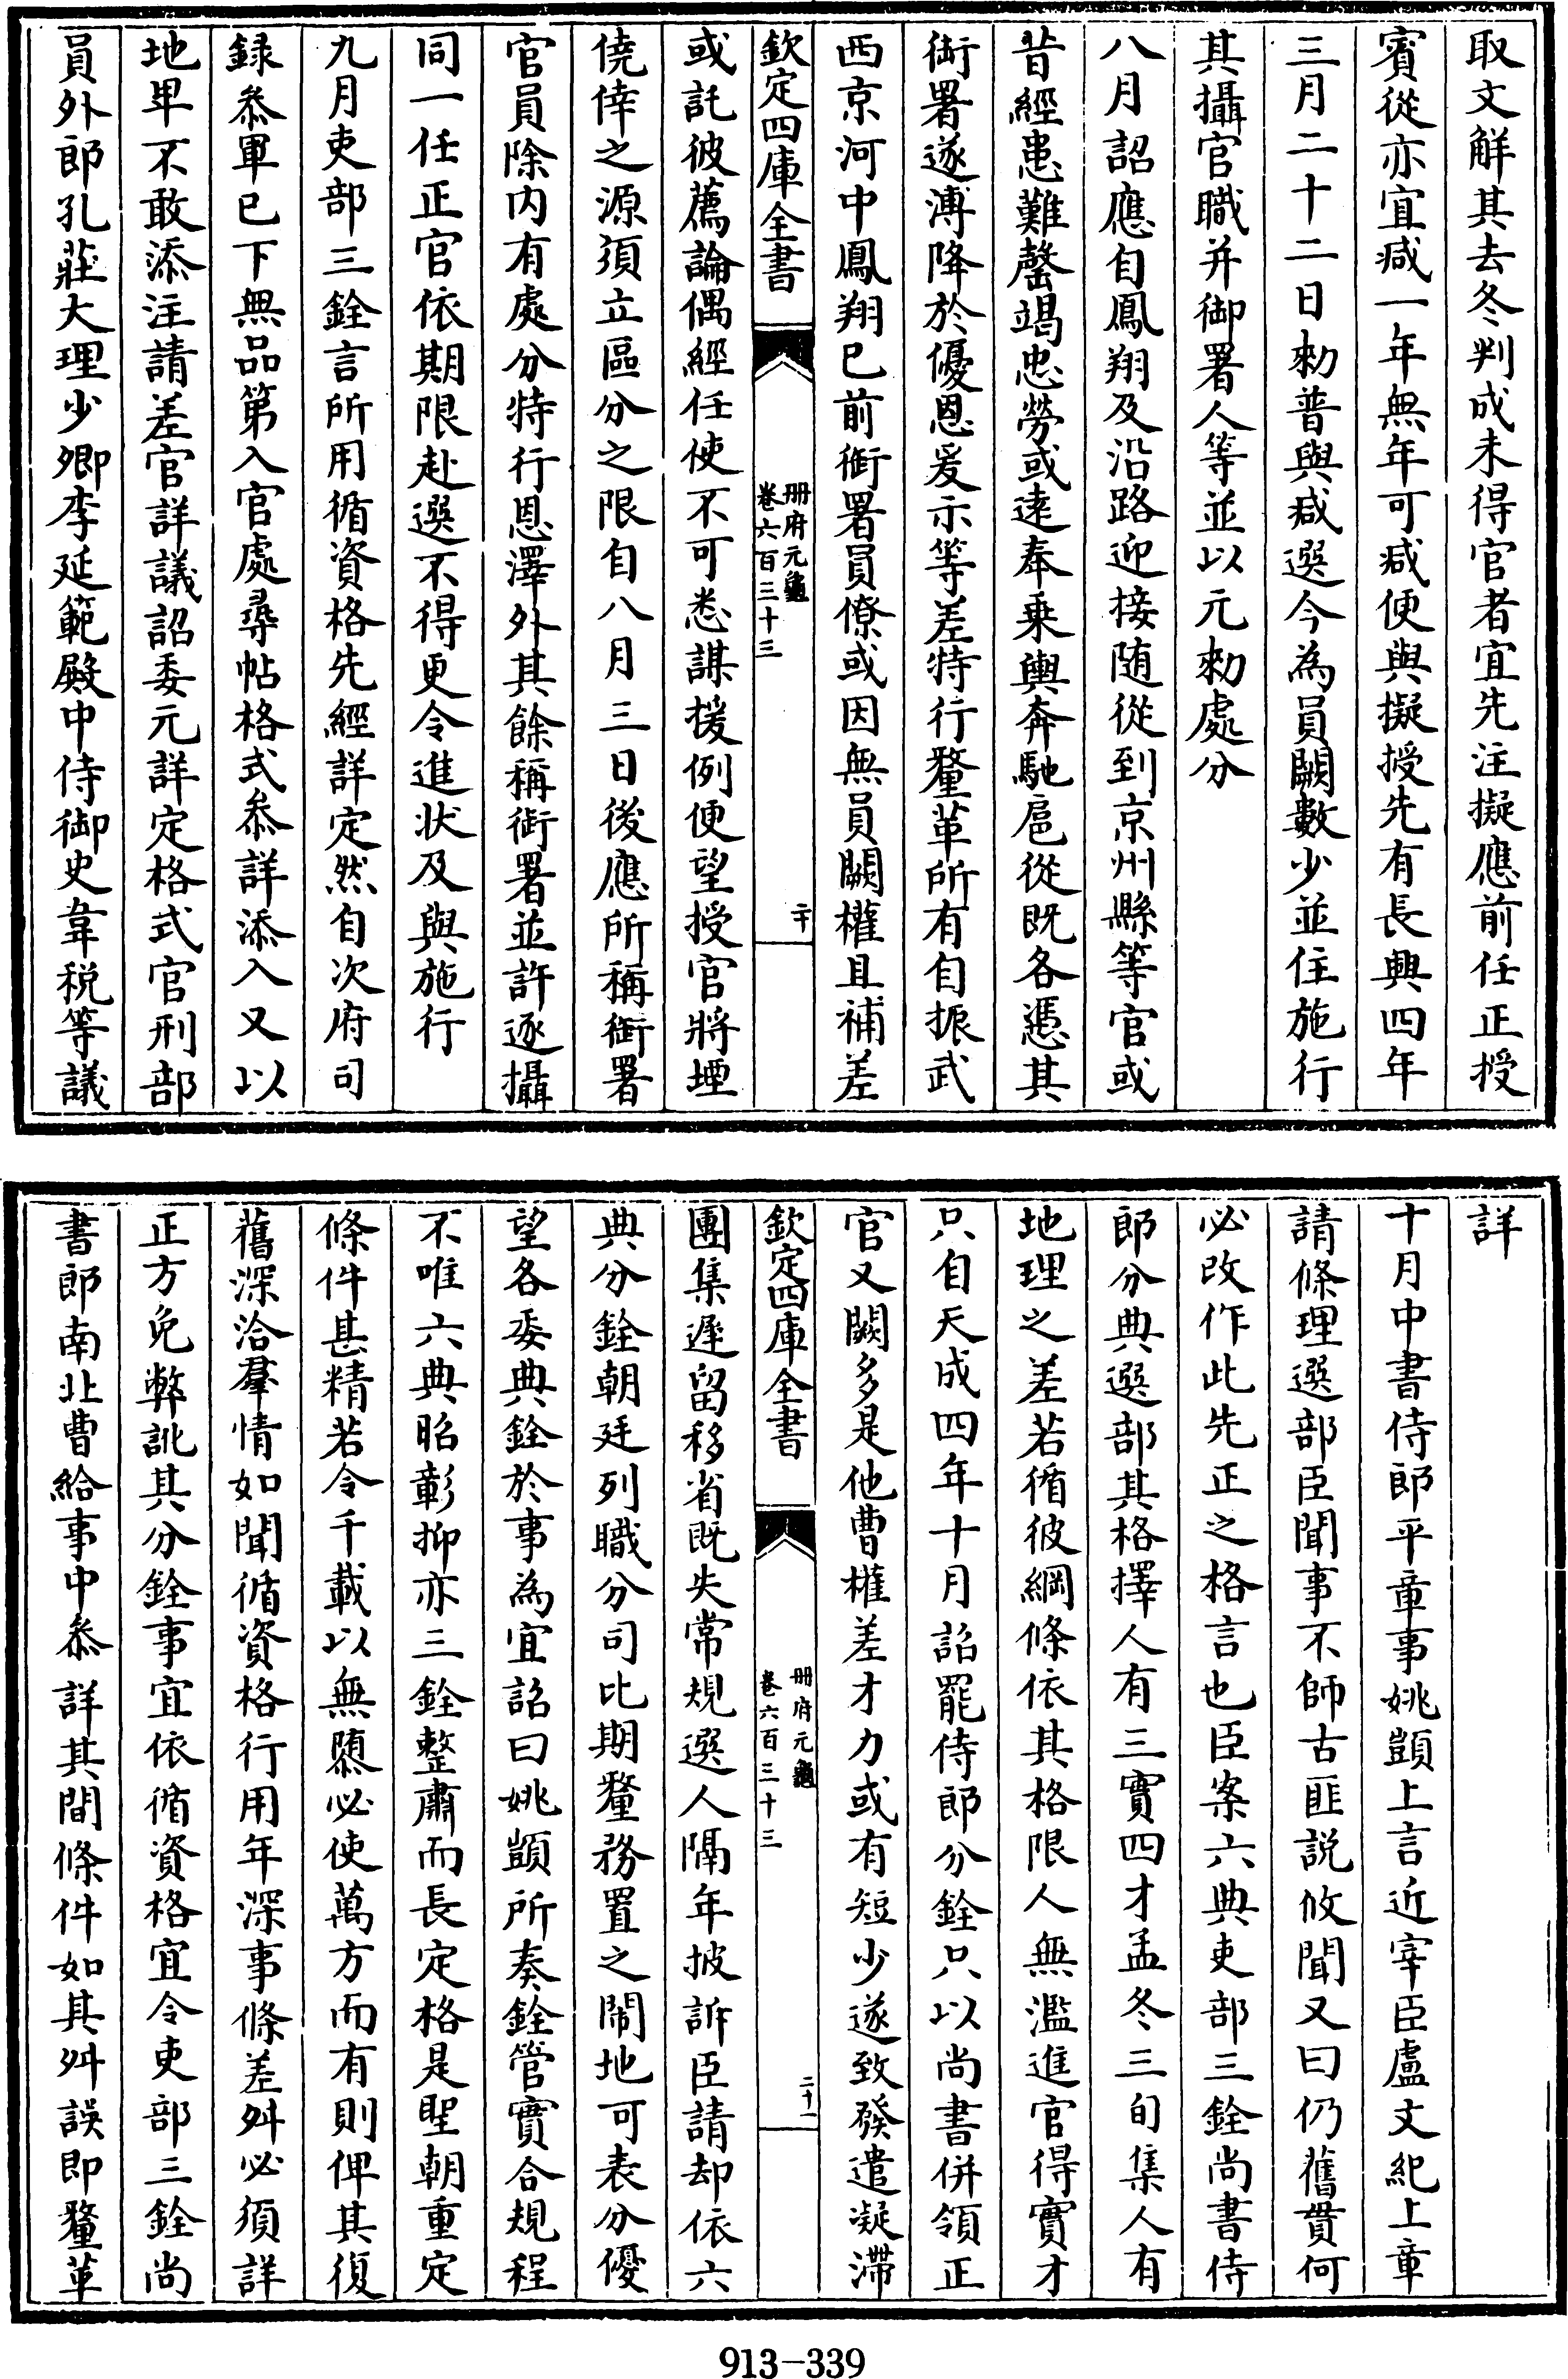 取文解其去冬判成未得官者宜先注擬應前任正授
賓從亦宜減一年無年可減便與擬授先有長興四年
三月二十二日勅普與減選今為員闕數少並住施行
其攝官職并御署人等並以元勅處分
八月詔應自鳳翔及沿路迎接隨從到京州縣等官或
昔經患難罄竭忠勞或逹奉乗輿奔馳扈從既各慿其
銜署遂溥降於優恩爰示等差特行釐革所有自振武
西京河中鳳翔已前銜署員僚或因無員闕權且補差
欽定四庫全書
冊府元龜
卷六百三十三
二十
或託彼薦論偶經任使不可悉謀援例便望授官將堙
僥倖之源須立區分之限自八月三日後應所稱銜署
官員除内有處分特行恩澤外其餘稱銜署並許逐攝
同一任正官依期限赴選不得更令進状及與施行
九月吏部三銓言所用循資格先經詳定然自次府司
録叅軍已下無品第入官處尋帖格式叅詳添入又以
地卑不敢添注請差官詳議詔委元詳定格式官刑部
員外郎孔莊大理少卿李延範殿中侍御史韋税等議
詳
十月中書侍郎平章事姚顗上言近宰臣盧文紀上章
請條理選部臣聞事不師古匪説攸聞又曰仍舊貫何
必改作此先正之格言也臣案六典吏部三銓尚書侍
郎分典選部其格擇人有三實四才孟冬三旬集人有
地理之差若循彼綱條依其格限人無濫進官得實才
只自天成四年十月詔罷侍郎分銓只以尚書併領正
官又闕多是他曹權差才力或有短少遂致發遣凝滯
欽定四庫全書
冊府元龜
卷六百三十三
二十一
團集遲留移省既失常規選人隔年披訴臣請却依六
典分銓朝廷列職分司比期釐務置之閒地可表分優
望各委典銓於事為宜詔曰姚顗所奏銓管實合規程
不唯六典昭彰抑亦三銓整肅而長定格是聖朝重定
條件甚精若令千載以無隳必使萬方而有則俾其復
舊深洽羣情如聞循資格行用年深事條差舛必須詳
正方免弊訛其分銓事宜依循資格宜令吏部三銓尚
書郎南北曹給事中叅詳其間條件如其舛誤即釐革
913-339